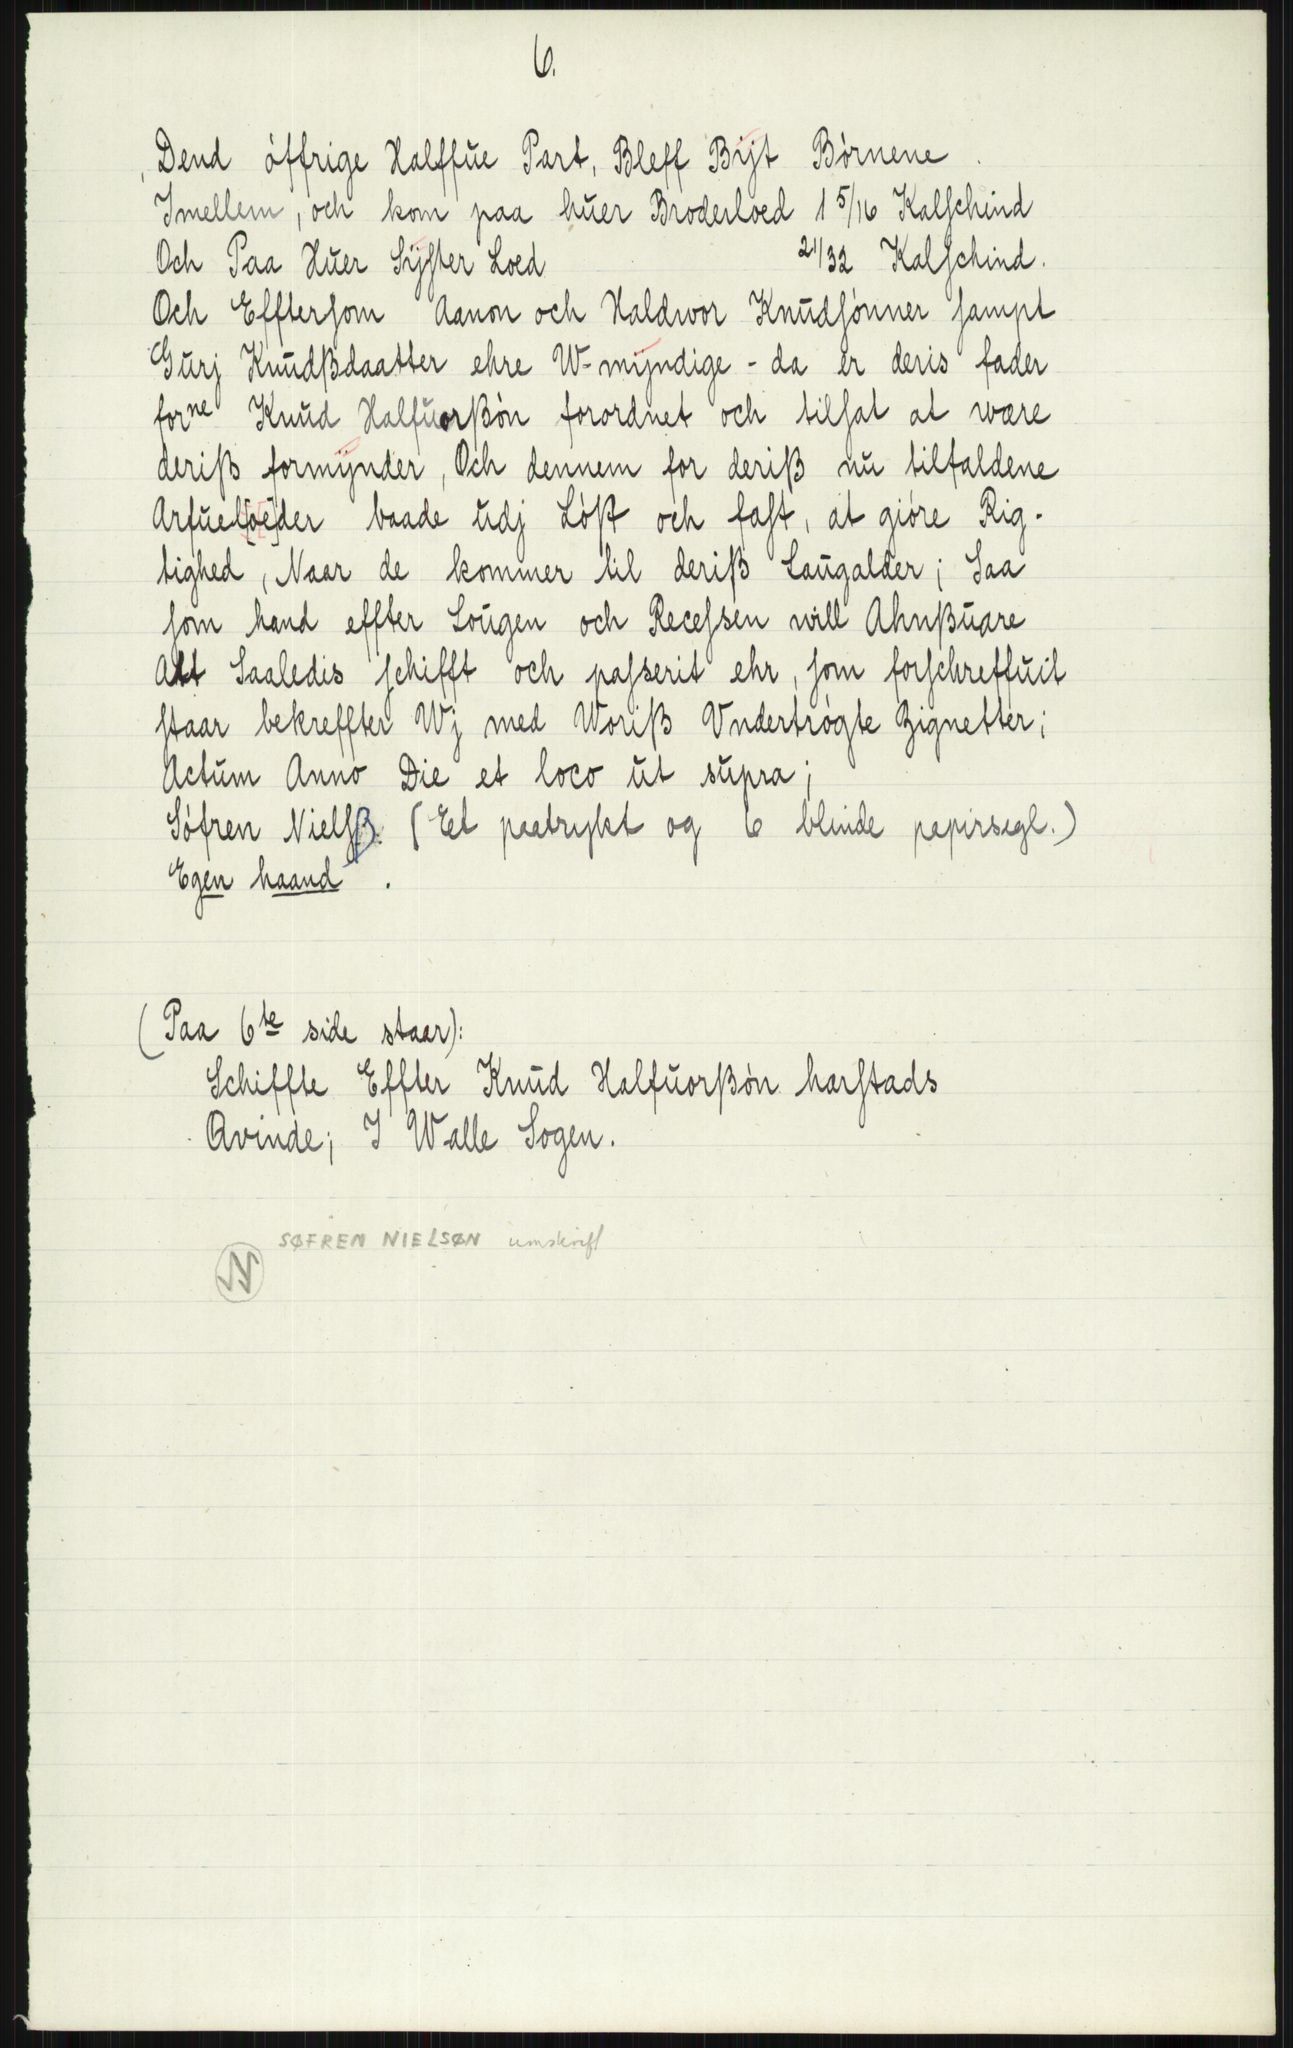 6.
Dend öffrige Halffue Part, Bleff Bÿt Børnene
Imellem, och kom paa huer Broderloed 1 5/16 Kalschind
Och Paa Huer Sÿster Loed 21/32 Kalschind.
Och Efftersom Aanon och Haldwor Knudsønner sampt
Gurj Knudßdaatter ehre W-mÿndige - da er deris fader
forne Knud Halfuorßøn forordnet och tilsat at wære
deriß formÿnder, Och dennem for deriß nu tilfaldene
Arfuel[oe]der baade udj Løßt och fast, at giøre Rig-
tighed, Naar de kommer til deriß Laugalder; Saa
som hand effter Lougen och Recessen will Ahnßuare
Att Saaledis schifft och passerit ehr, som forschreffuit
staar bekreffter Wj med Woriß Vndertrøgte Zignetter;
Actum Anno Die et loco ut supra;
Søfren Nielsß. (Et paatrykt og 6 blinde papirsegl.)
Egen haand.
(Paa 6te side staar):
Schiffte Effter Knud Halfuorßøn harstads
Qvinde; I Walle Sogen.
SØFREN NIELSØN umskrift